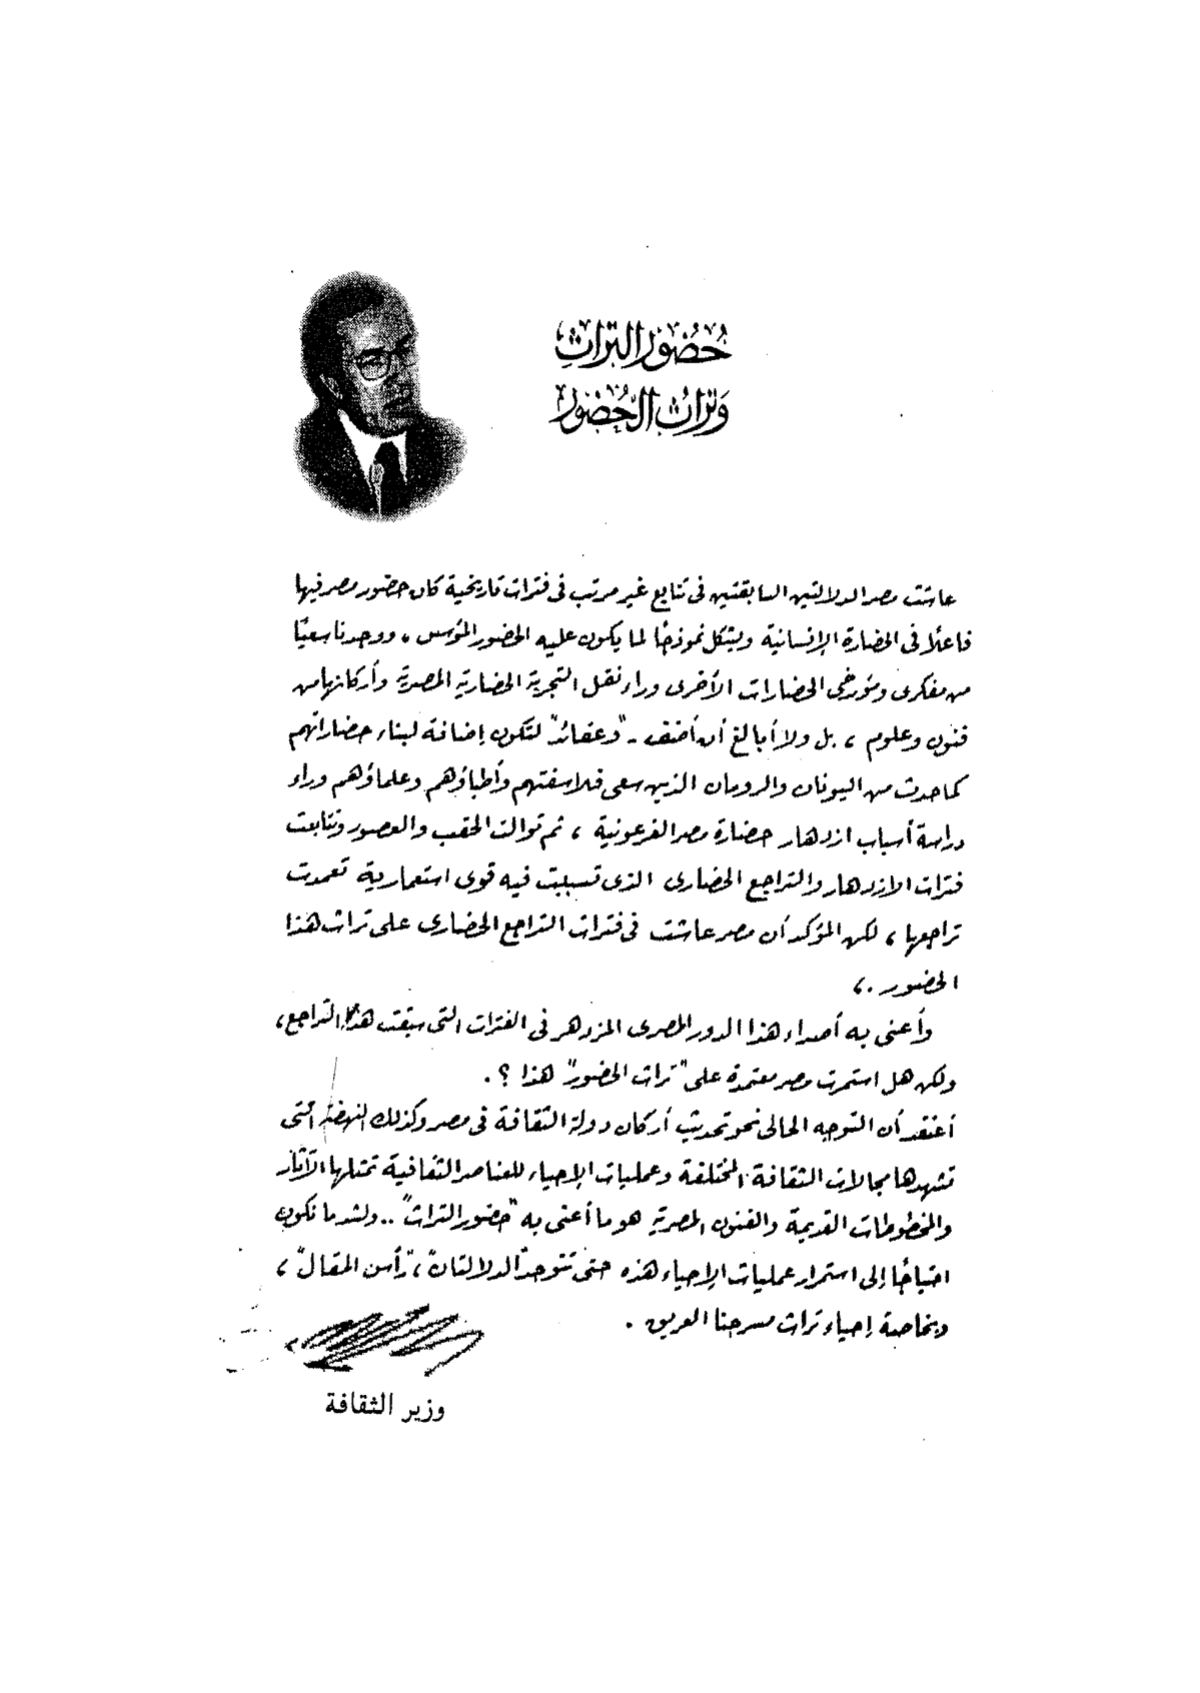 حُضُور التراثِ
وَتراثُ الحُضُور
عاشت مصر الدلالتين السابقتين فى تتابع غير مرتب فى فترات تاريخية كان حضور مصر فيها
فاعلًا فى الحضارة الإنسانية ويشكل نموذجًا لما يكون عليه الحضور المؤسس ، ووجدنا سعيًا
من مفكرى ومؤرخى الحضارات الأخرى وراء نقل التجربة الحضارية المصرية وأركانها من
فنون وعلوم ، بل ولا أبالغ أن أضف - "وعقائد" لتكون إضافة لبناء حضاراتهم
كما حدث من اليونان والرومان الذين سعى فلاسفتهم وأطباؤهم وعلماؤهم وراء
دراسة أسباب ازدهار حضارة مصر الفرعونية ، ثم توالت الحقب والعصور وتتابعت
فترات الازدهار والتراجع الحضارى الذى تسببت فيه قوى استعمارية تعمدت
تراجعها ، لكن المؤكد أن مصر عاشت فى فترات التراجع الحضارى على تراث هذا
الحضور .،
وأعنى به أصداء هذا الدور المصرى المزدهر فى الفترات التى سبقت هذا التراجع ،
ولكن هل استمرت مصر معتمدة على "تراث الحضور" هذا ؟ .
أعتقد أن التوجه الحالى نحو تحديث أركان دولة الثقافة فى مصر وكذلك النهضة التى
تشهدها مجالات الثقافة المختلفة وعمليات الإحياء للعناصر الثقافية تمثلها الآثار
والمخطوطات القديمة والفنون المصرية هو ما أعنى به "حضور التراث" .. ولشد ما نكون
احتياجًا إلى استمرار عمليات الإحياء هذه حتى تتوحد الدلالتان ، "رأس المقال" ،
وبخاصة إحياء تراث مسرحنا العريق .
وزير الثقافة